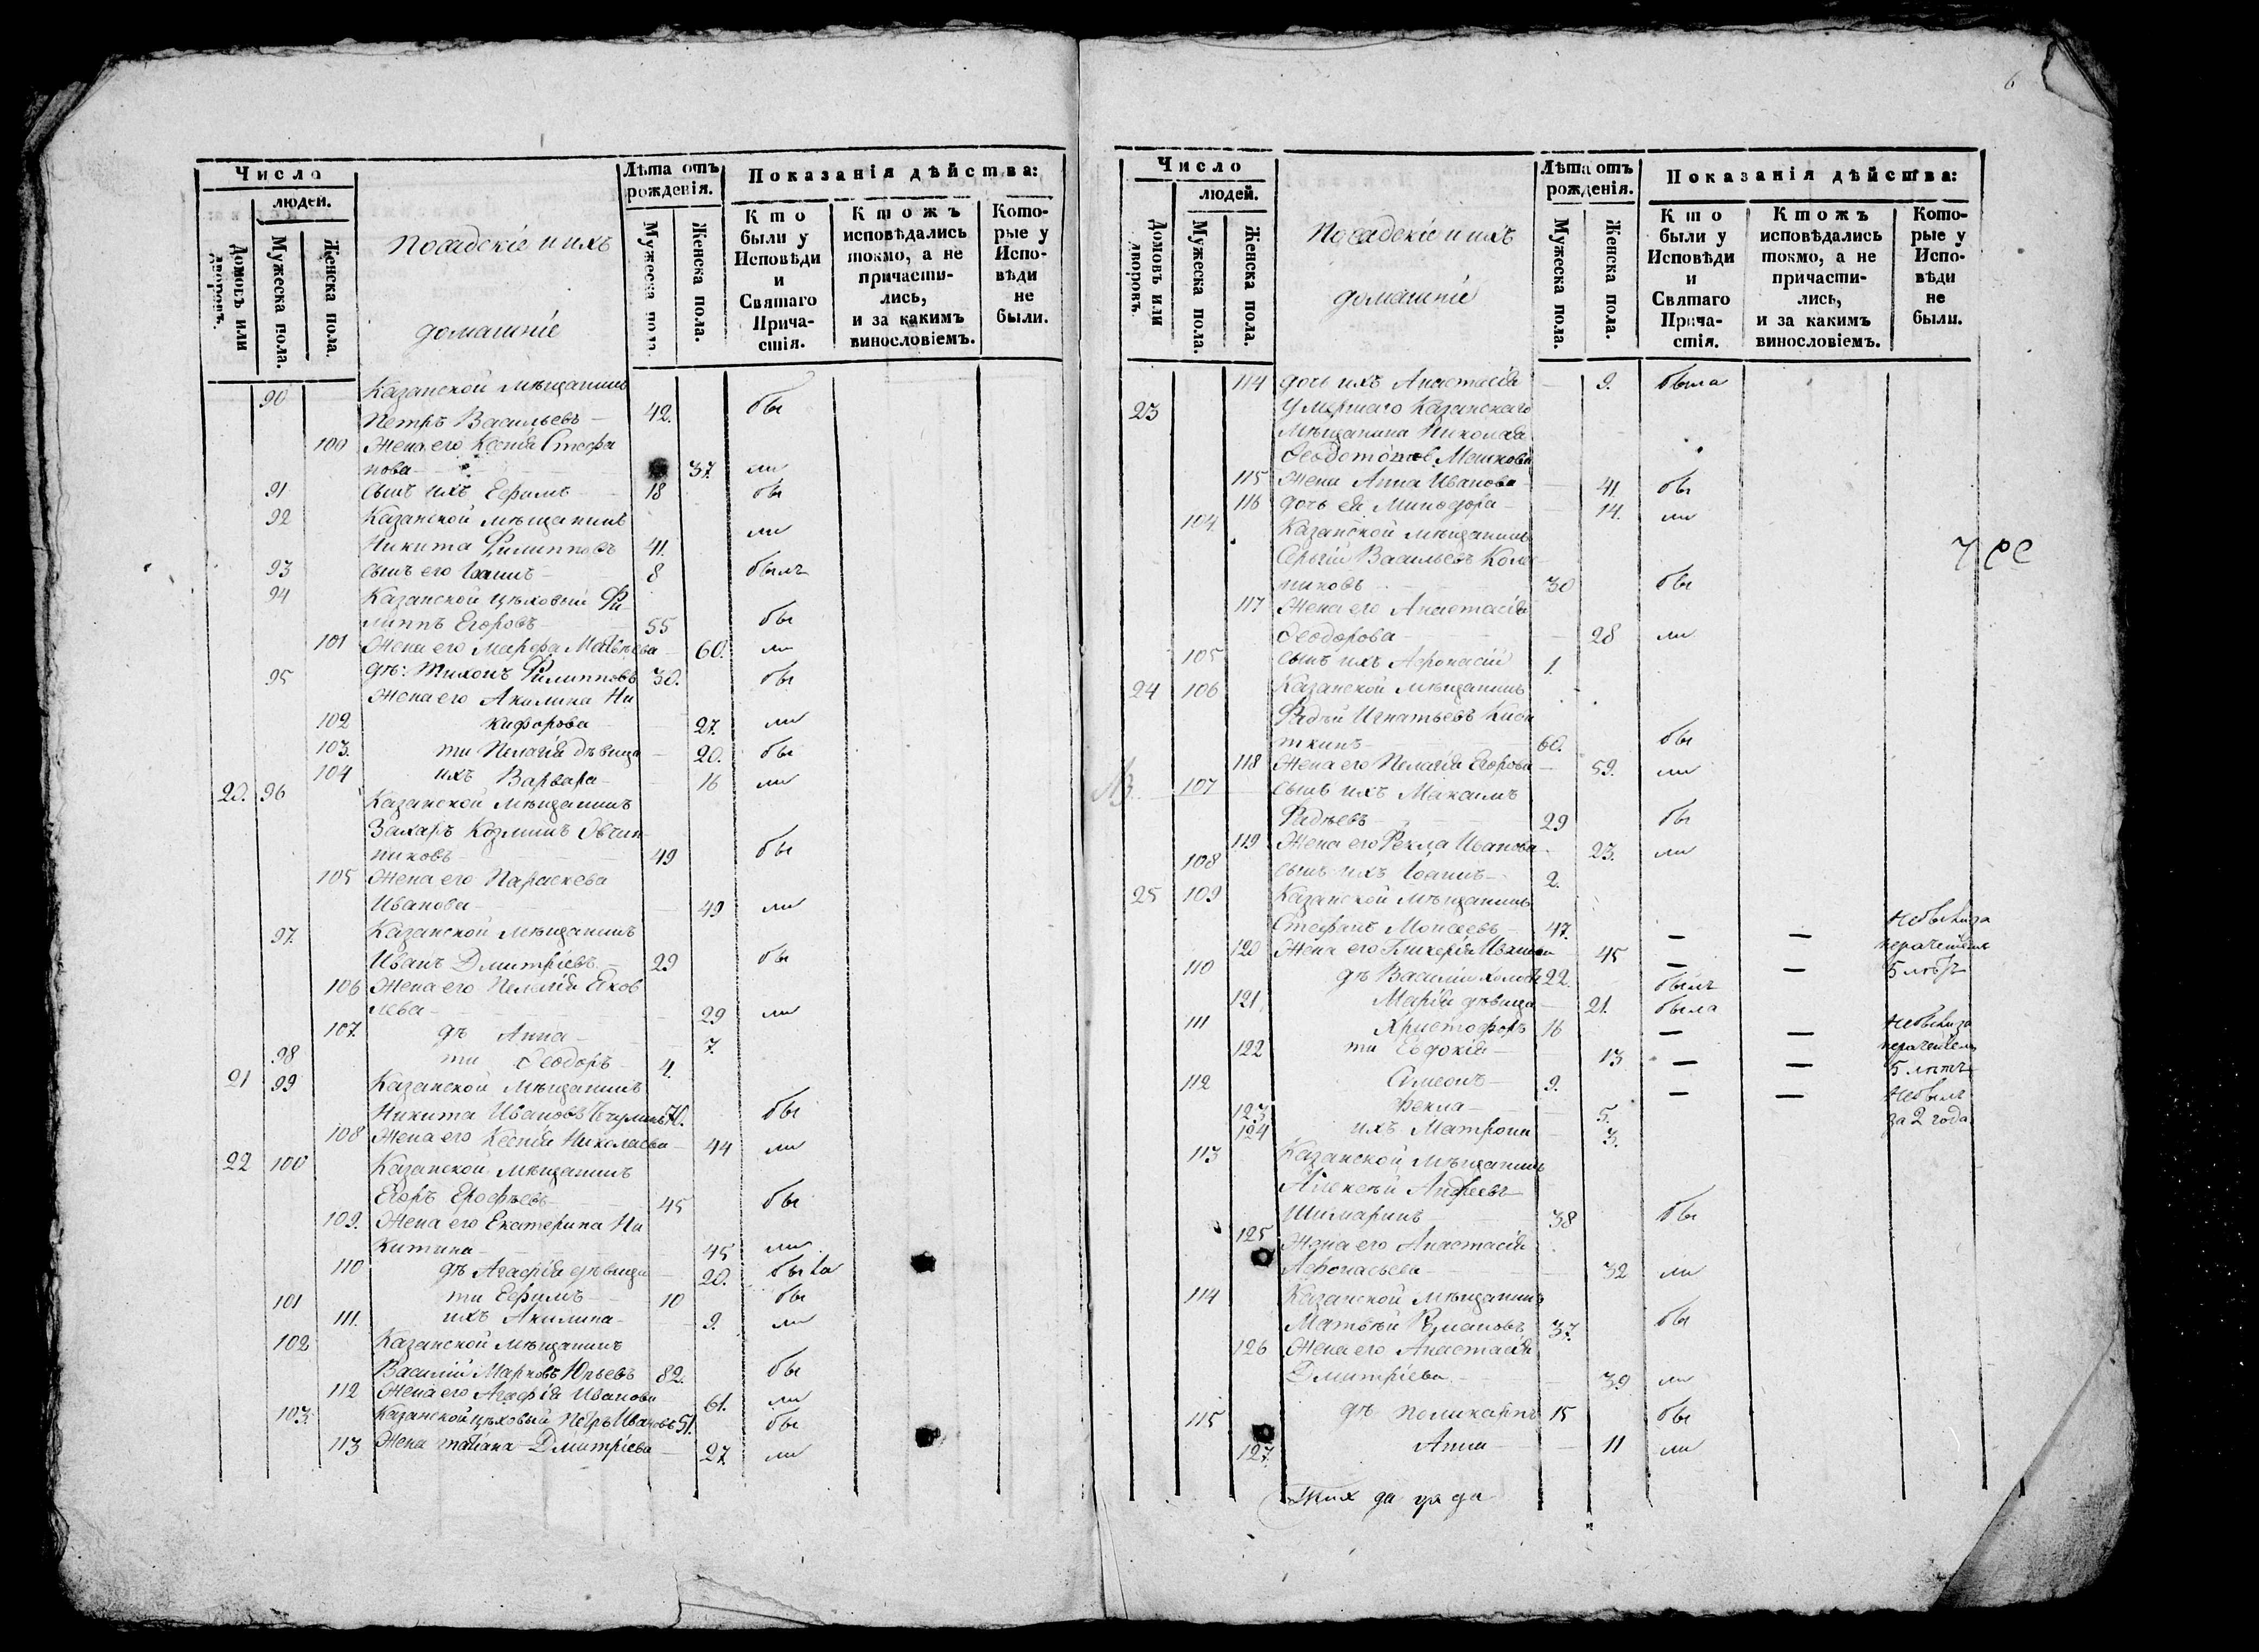 6
Число
людей.
Домовъ или дворовъ.
Мужеска пола.
Женска пола.
Посадскіе и ихъ
домашніе
Лѣта отъ рожденія.
Мужеска пола.
Женска пола.
Показанія дѣйства:
Кто были у Исповѣди и Святаго Причастія.
Ктожъ исповѣдались токмо, а не причастились, и за какимъ винословіемъ.
Которые у Исповѣди не были.
90 Казанской мѣщанинъ
Петръ Васильевъ 42. бы
100 Жена его Ксенія Стефа
нова 37. ли
91 сынъ ихъ Ефимъ 18 бы
92 Казанской мѣщанинъ
Никита Филипповъ 41. ли
93 сынъ его Іоаннъ 8 былъ
94 Казанской цѣховый Фи
липпъ Егоровъ 55 бы
101 Жена его Марфа Матвѣева 60. ли
95 дѣ: Тихонъ Филипповъ 30. бы
Жена его Акилина Ни
102 кифорова 27. ли
103. ти Пелагія дѣвица 20. бы
104 ихъ Варвара 16 ли
20. 96 Казанской мѣщанинъ
Захаръ Козминъ Овчин
никовъ 49 бы
105 Жена его Параскева
Иванова 49 ли
97. Казанской мѣщанинъ
Иванъ Дмитріевъ 29 бы
106 Жена его Пелагія Яков
лева 29 ли
107. дѣ Анна 7.
98 ти Ѳеодоръ 4.
21 99 Казанской мѣщанинъ
Никита Ивановъ 70. бы
108 Жена его Ксенія Николаева 44 ли
22 100 Казанской мѣщанинъ
Егоръ Ерофѣевъ 45 бы
109. Жена его Екатерина Ни
китина 45 ли
110 дѣ Агафія дѣвица 20. была
101 ти Ефимъ 10 бы
111. ихъ Акилина 9. ли
102 Казанской мѣщанинъ
Василій Марковъ Юрьевъ 82. бы
112 Жена его Агафія Иванова 61. ли
103 Казанской цѣховый Петръ Ивановъ 51. бы
113 Жена Татіана Дмитріева 27. ли
Число
людей.
Домовъ или дворовъ.
Мужеска пола.
Женска пола.
Посадскіе и ихъ
домашніе
Лѣта отъ рожденія.
Мужеска пола.
Женска пола.
Показанія дѣйства:
Кто были у Исповѣди и Святаго Причастія.
Ктожъ исповѣдались токмо, а не причастились, и за какимъ винословіемъ.
Которые у Исповѣди не были.
114 дочь ихъ Анастасія 9. была
23 Умершаго Казанскаго
мѣщанина Николая
Мешкова
115 Жена Анна Иванова 41. бы
116 дочь ея Минодора 14. ли
104. Казанской мѣщанинъ
Сергій Васильевъ Коле
никовъ 30 бы
117 Жена его Анастасія
Ѳеодорова 28 ли
105 сынъ ихъ Афонасій 1.
24 106 Казанской мѣщанинъ
Фадѣй Игнатьевъ Киби
ткинъ 60. бы
118 Жена его Пелагія Егорова 59. ли
107 сынъ ихъ Максимъ
Фадѣевъ 29 бы
119 Жена его Фекла Иванова 23. ли
108 сынъ ихъ Іоаннъ 2.
25 109 Казанской мѣщанинъ
Стефанъ Моисеевъ 47. — — Небыли за
120 Жена его Гликерія Иванова 45 — — нераченіемъ
110 дѣ Василій холостъ 22. былъ 5 лѣтъ
121. Марія дѣвица 21. была
111 Христофоръ 16 — — Небыли за
122 ти Евдокія 13 — — нерачением
112 Симеонъ 9. — — 5 лѣтъ
123 Фекла 5. Небылъ
124 ихъ Матрона 3. за 2 года
113 Казанской мѣщанинъ
Алексѣй Андреевъ
Шимаринъ 38 бы
125 Жена его Анастасія
Афонасьева 32 ли
114 Казанской мѣщанинъ
Матвѣй Романовъ 37. бы
126 Жена его Анастасія
Дмитріева 39 ли
115 дѣ Поликарпъ 15 бы
127. Анна 11 ли